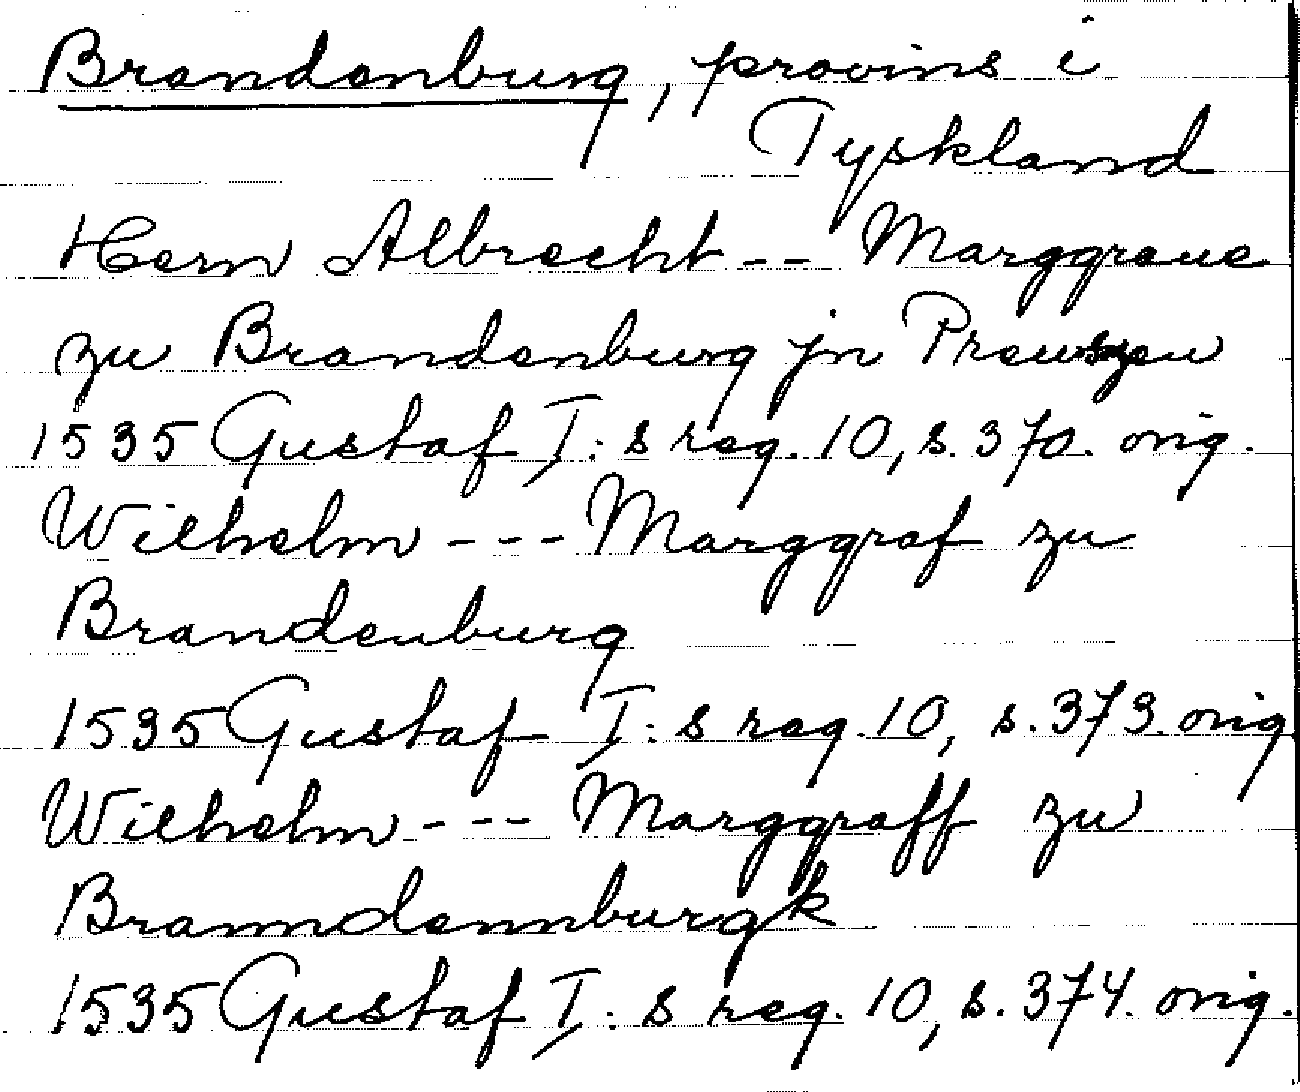 Brandenburg, provins i
Tyskland
Hern Albrecht -- Marggraue
zu Brandenburg jn Preuszen
1535 Gustaf I:s reg. 10, s. 370. orig.
Wilhelm --- Marggraf zu
Brandenburg
1535 Gustaf I:s reg. 10, s. 373. orig
Wilhelm --- Marggraff zu
Branndennburgk
1535 Gustaf I:s reg. 10, s. 374. orig.